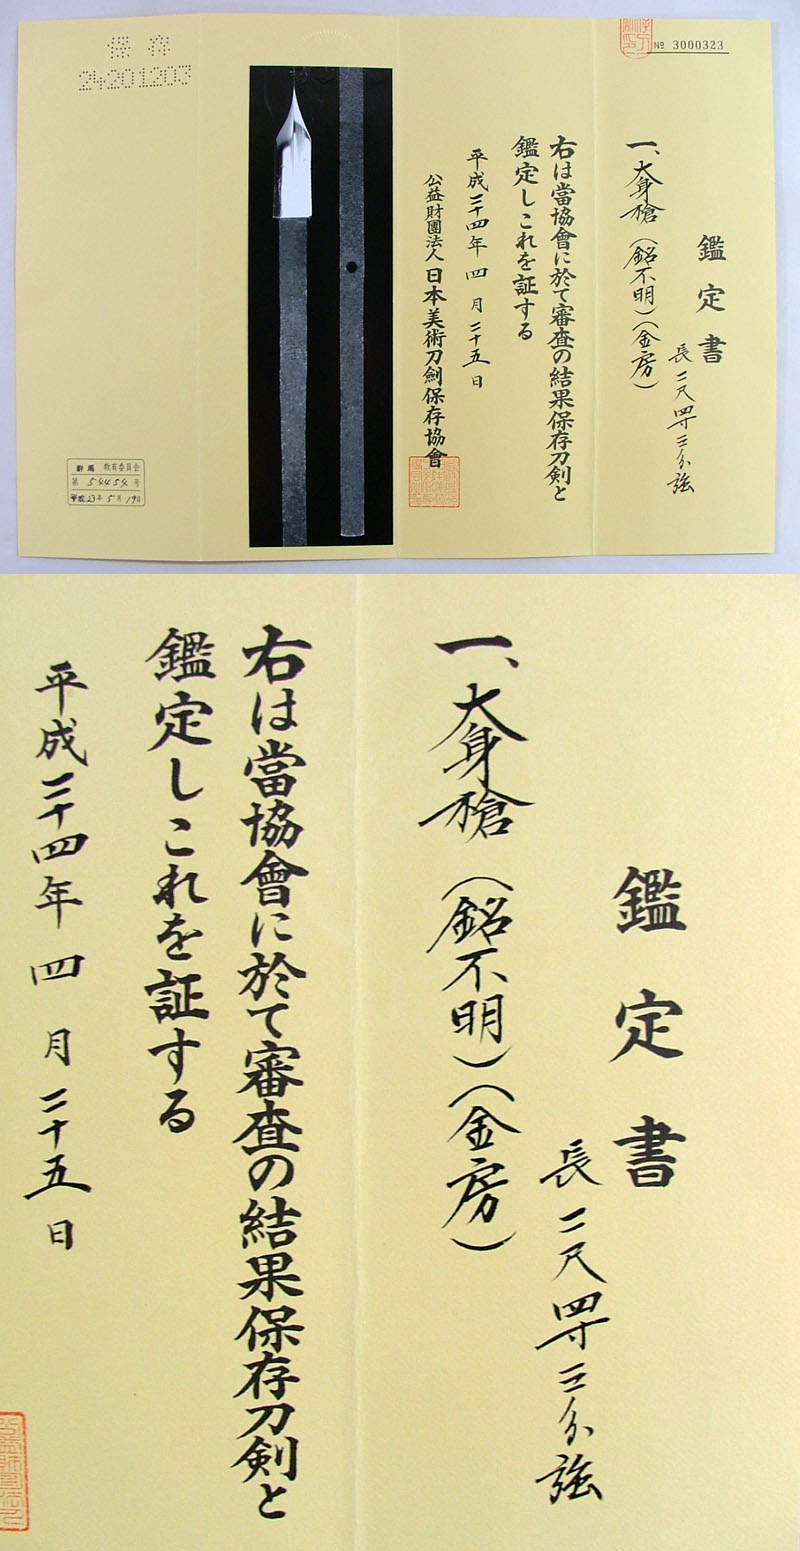 № 3000323
鑑定書
長二尺四寸三分強
一、大身槍（銘不明）（金房）
右は當協會に於て審査の結果保存刀剣と
鑑定しこれを証する
平成二十四年四月二十五日
公益財團法人日本美術刀劍保存協會
保存
24201203
對馬 教育委員会
第 54454 号
平成23年5月19日
鑑定書
長二尺四寸三分強
一、大身槍（銘不明）（金房）
右は當協會に於て審査の結果保存刀剣と
鑑定しこれを証する
平成二十四年四月二十五日